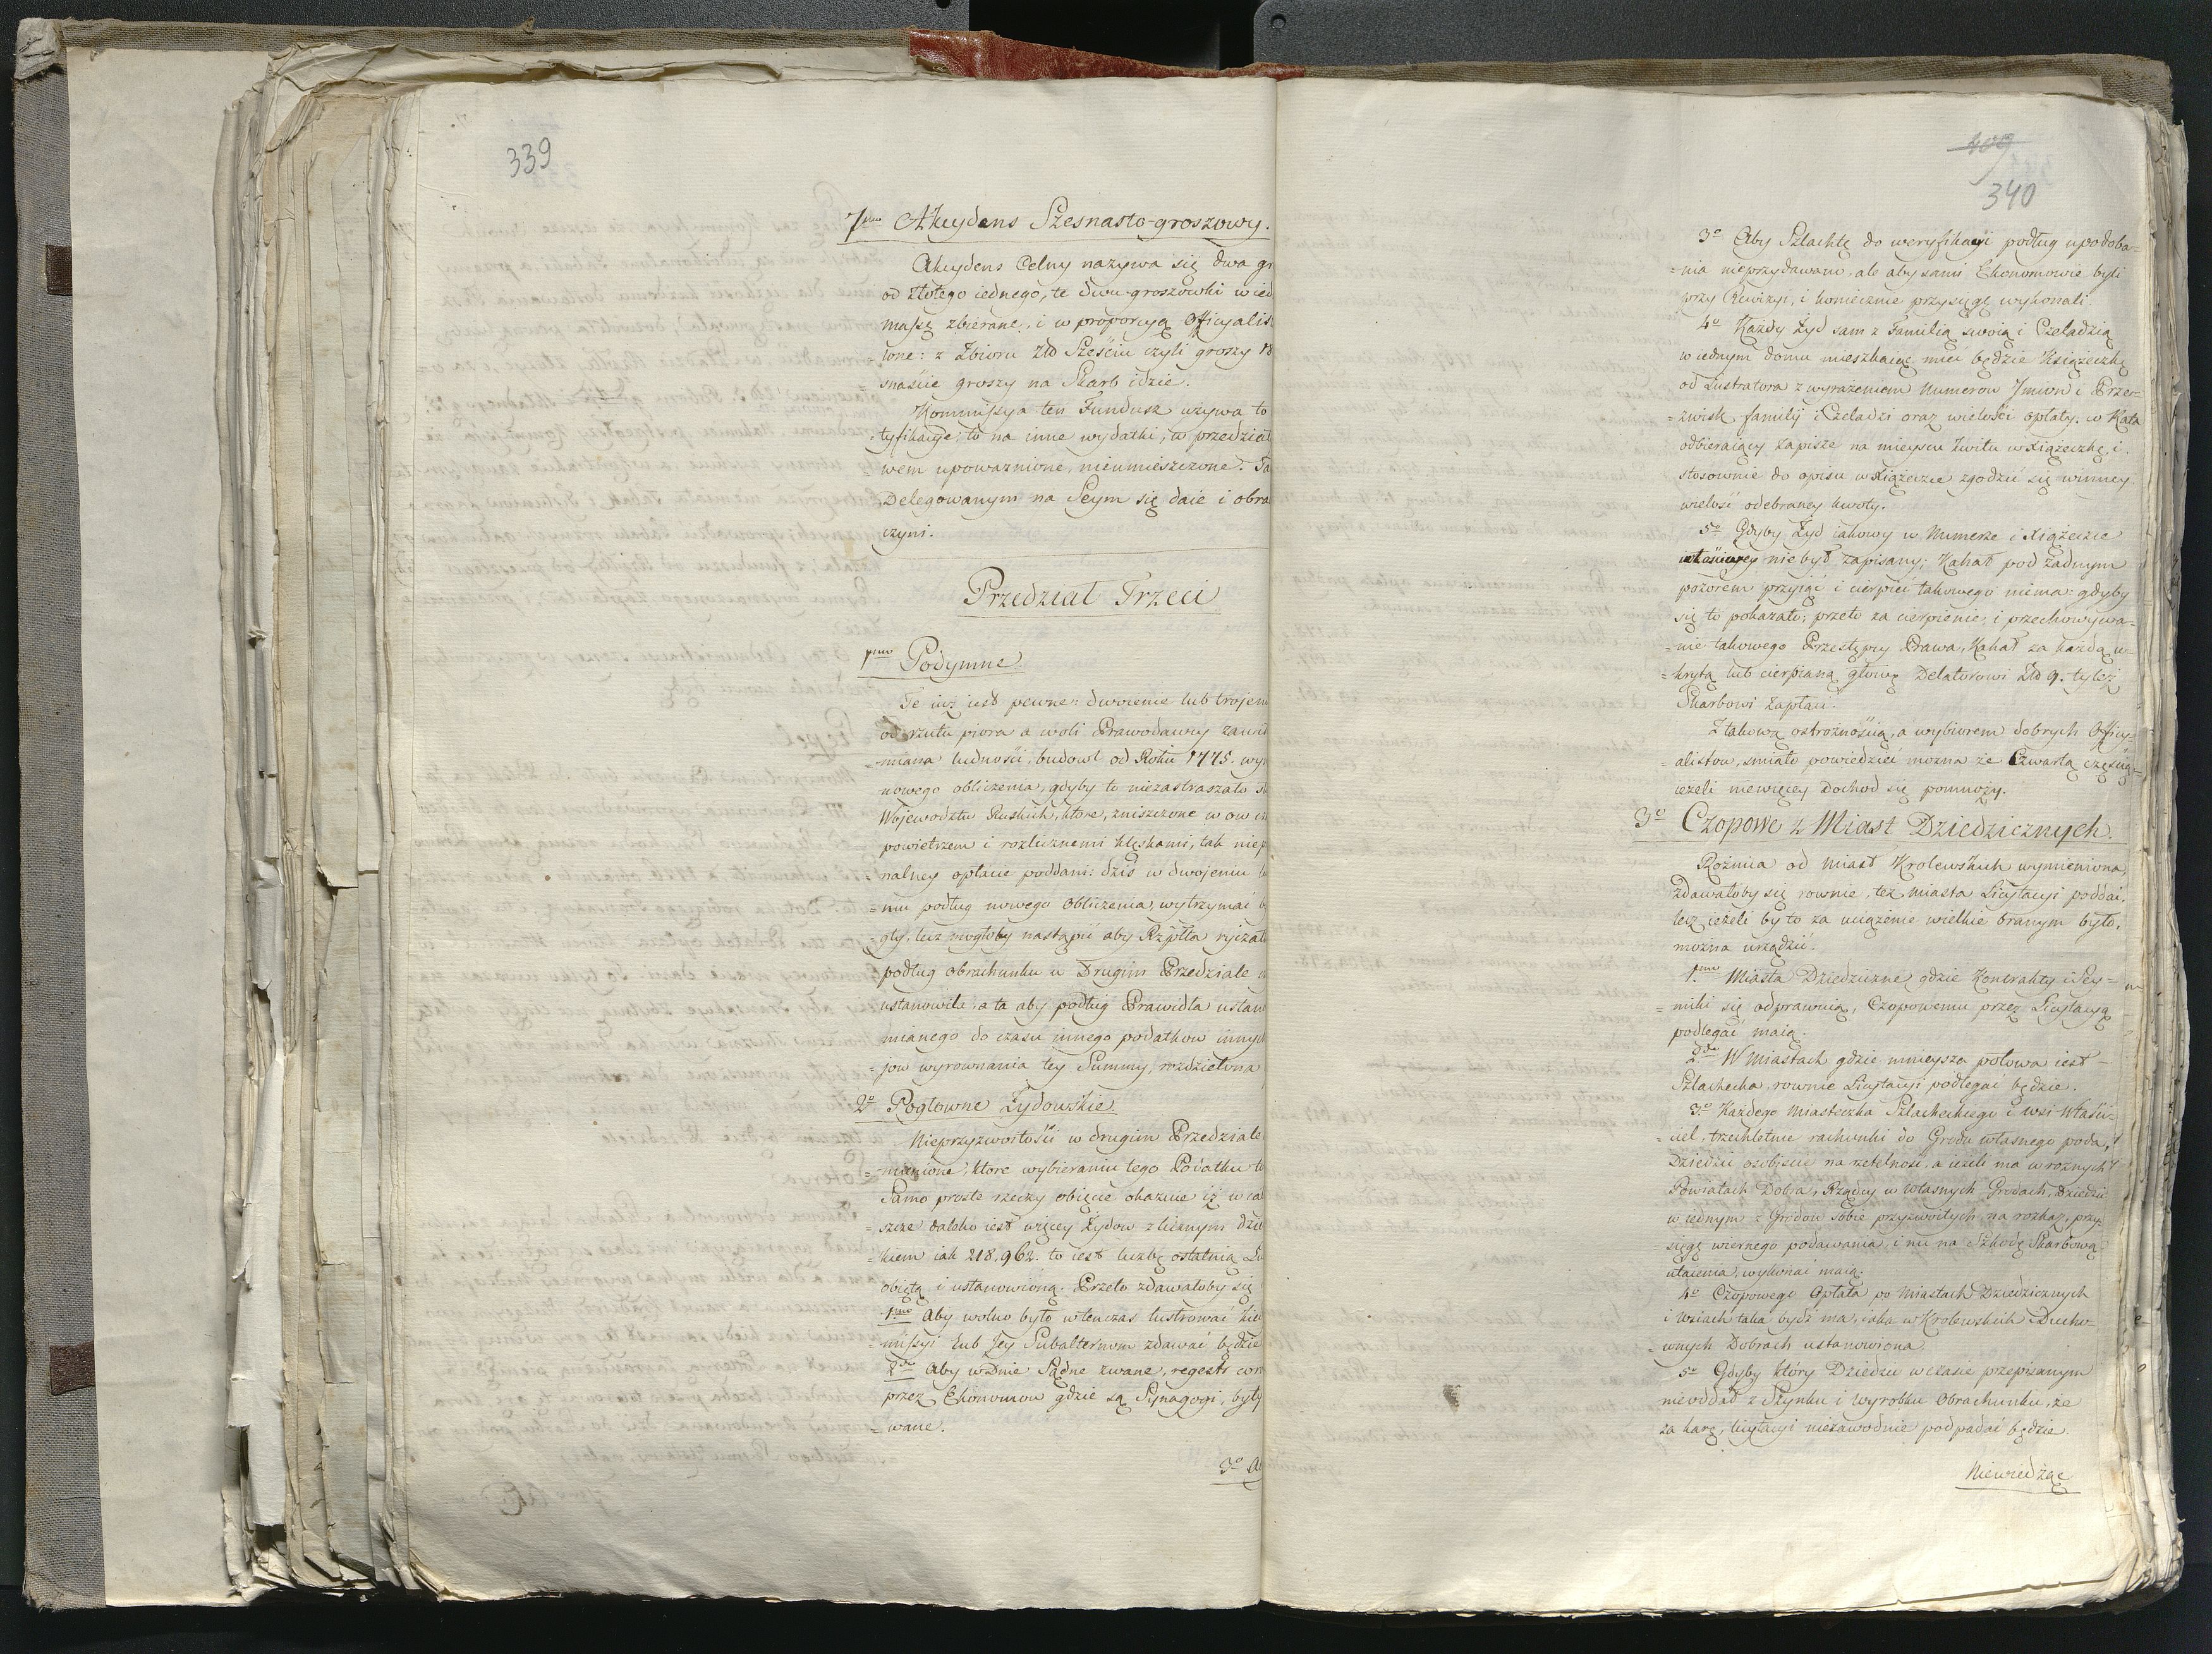 339
7mo Akcydens Szesnasto-groszowy.
Akcydens Celny nazywa się dwa gr
od złotego iednego, te dwu-groszowki w ied
massę zbierane, i w proporcyą Officyalis
ione: z Zbioru Złd Sześciu czyli groszy 18
snaście groszy na Skarb idzie.
Kommissya ten Fundusz używa to
-tyfikacye; to na inne wydatki, w przedział
wem upoważnione, nieumieszczone. Ta
Delegowanym na Seym się daie i obra
czyni.
Przedział Trzeci
1mo Podymne
Te iuż iest pewne: dwoienie lub trojeni
od rzutu piora a woli Prawodawcy zawi
-miana ludności, budowl od Roku 1775. wy
nowego obliczenia, gdyby to niezastraszało
Woiewodztw Ruskich, ktore, zniszczone w ow
powietrzem i rozlicznemi klęskami, tak niep
-nalney opłacie poddani: dziś w dwojeniu
=niu podług nowego Obliczenia, wytrzymać
-gły, lecz mogłoby nastąpić aby Rzptta ryczał
podług obrachunku w Drugim Przedziale
ustanowiła, a ta aby podług Prawidła ustan
mianego do czasu innego podatkow innych
-jow wyrownania tey Summy, rozdzielona
2o Pogłowne Żydowskie.
Nieprzyzwoitości w drugim Przedziale
=mienione, ktore wybieraniu tego Podatku to
Samo proste rzeczy obięcie okazuie iż w ca
-szcze daleko iest więcey Żydow z licznym dzie
-kiem iak 218,962. to iest liczbę ostatnią Lu
obiętą i ustanowioną. Przeto zdawałoby się
1mo Aby wolno było wtenczas lustrować kie
-missyi lub Jey Subalternom zdawać będzie
2do Aby w Dnie Sądne zwane, regestr
przez Ekonomow gdzie są Synagogi, były
-wane.
3o A
409
340
3o Aby Szlachtę do weryfikacyi podług upodoba-
=nia nieprzydawani, ale aby sami Ekonomowie byli
przy Rewizyi, i koniecznie przysięgę wykonali
4o Każdy Żyd sam z Familią swoią i Czeladzią
w iednym domu mieszkaiąc mieć będzie Książeczkę
od Lustratora z wyrażeniem Numerow Jmion i Prze-
-zwisk familij i Czeladzi oraz wielości opłaty, w Kata
odbieraiący zapisze na mieyscu kwitu w Xiążeczkę, i
stosownie do opisu w Xiążeczce zgodzić się winney
wielość odebraney kwoty.
5o Gdyby Żyd iakowy w Numerze i Xiążeczce
właściwey nie był zapisany; Kahał pod żadnym
pozorem przyiąć i cierpieć takowego niema: gdyby
się to pokazało, przeto za cierpienie, i przechowywa-
-nie takowego Przestępcy Prawa, Kahał za każdą u-
-krytą lub cierpianą głowę Delatorowi Złd 9. tyleż
Skarbowi zapłaci.
Z takową ostrożnością, a wybiorem dobrych Officy-
-alistow, śmiało powiedzieć można że Czwartą częścią
ieżeli niewięcey Dochod się pomnoży.
3o Czopowe z Miast Dziedzicznych.
Rożnica od miast Krolewskich wymieniona,
zdawałoby się rownie, też miasta Licytacyi poddać,
lecz ieżeli by to za uciążenie wielkie branym było,
można urządzić.
1mo Miasta Dziedziczne gdzie Kontrakty i Sey-
-miki się odprawuią, Czopowemu przez Licytacyą
podlegać maią.
2do W Miastach gdzie mnieysza połowa iest
Szlachecka, rownie Licytacyi podlegać będzie.
3o Każdego Miasteczka Szlacheckiego i wsi Właści-
-ciel, trzechletnie rachunki do Grodu własnego poda,
Dziedzic osobiście na rzetelność, a ieżeli ma w rożnych
Powiatach Dobra, Rządcy w własnych Grodach, Dziedzic
w iednym z Grodow sobie przyzwoitych na rozkaz, przy-
-sięgę wiernego podawania, i nic na Szkodę Skarbową
utaienia, wykonać maią.
4o Czopowego Opłata po Miastach Dziedzicznych
i Wsiach taka bydź ma, iaka w Krolewskich i Ducho-
-wnych Dobrach ustanowiona.
5o Gdyby który Dziedzic w czasie przepisanym
nie oddał z Szynku i wyrobku Obrachunku, że
za karę, licytacyi niezawodnie podpadać będzie.
Niewiedząc